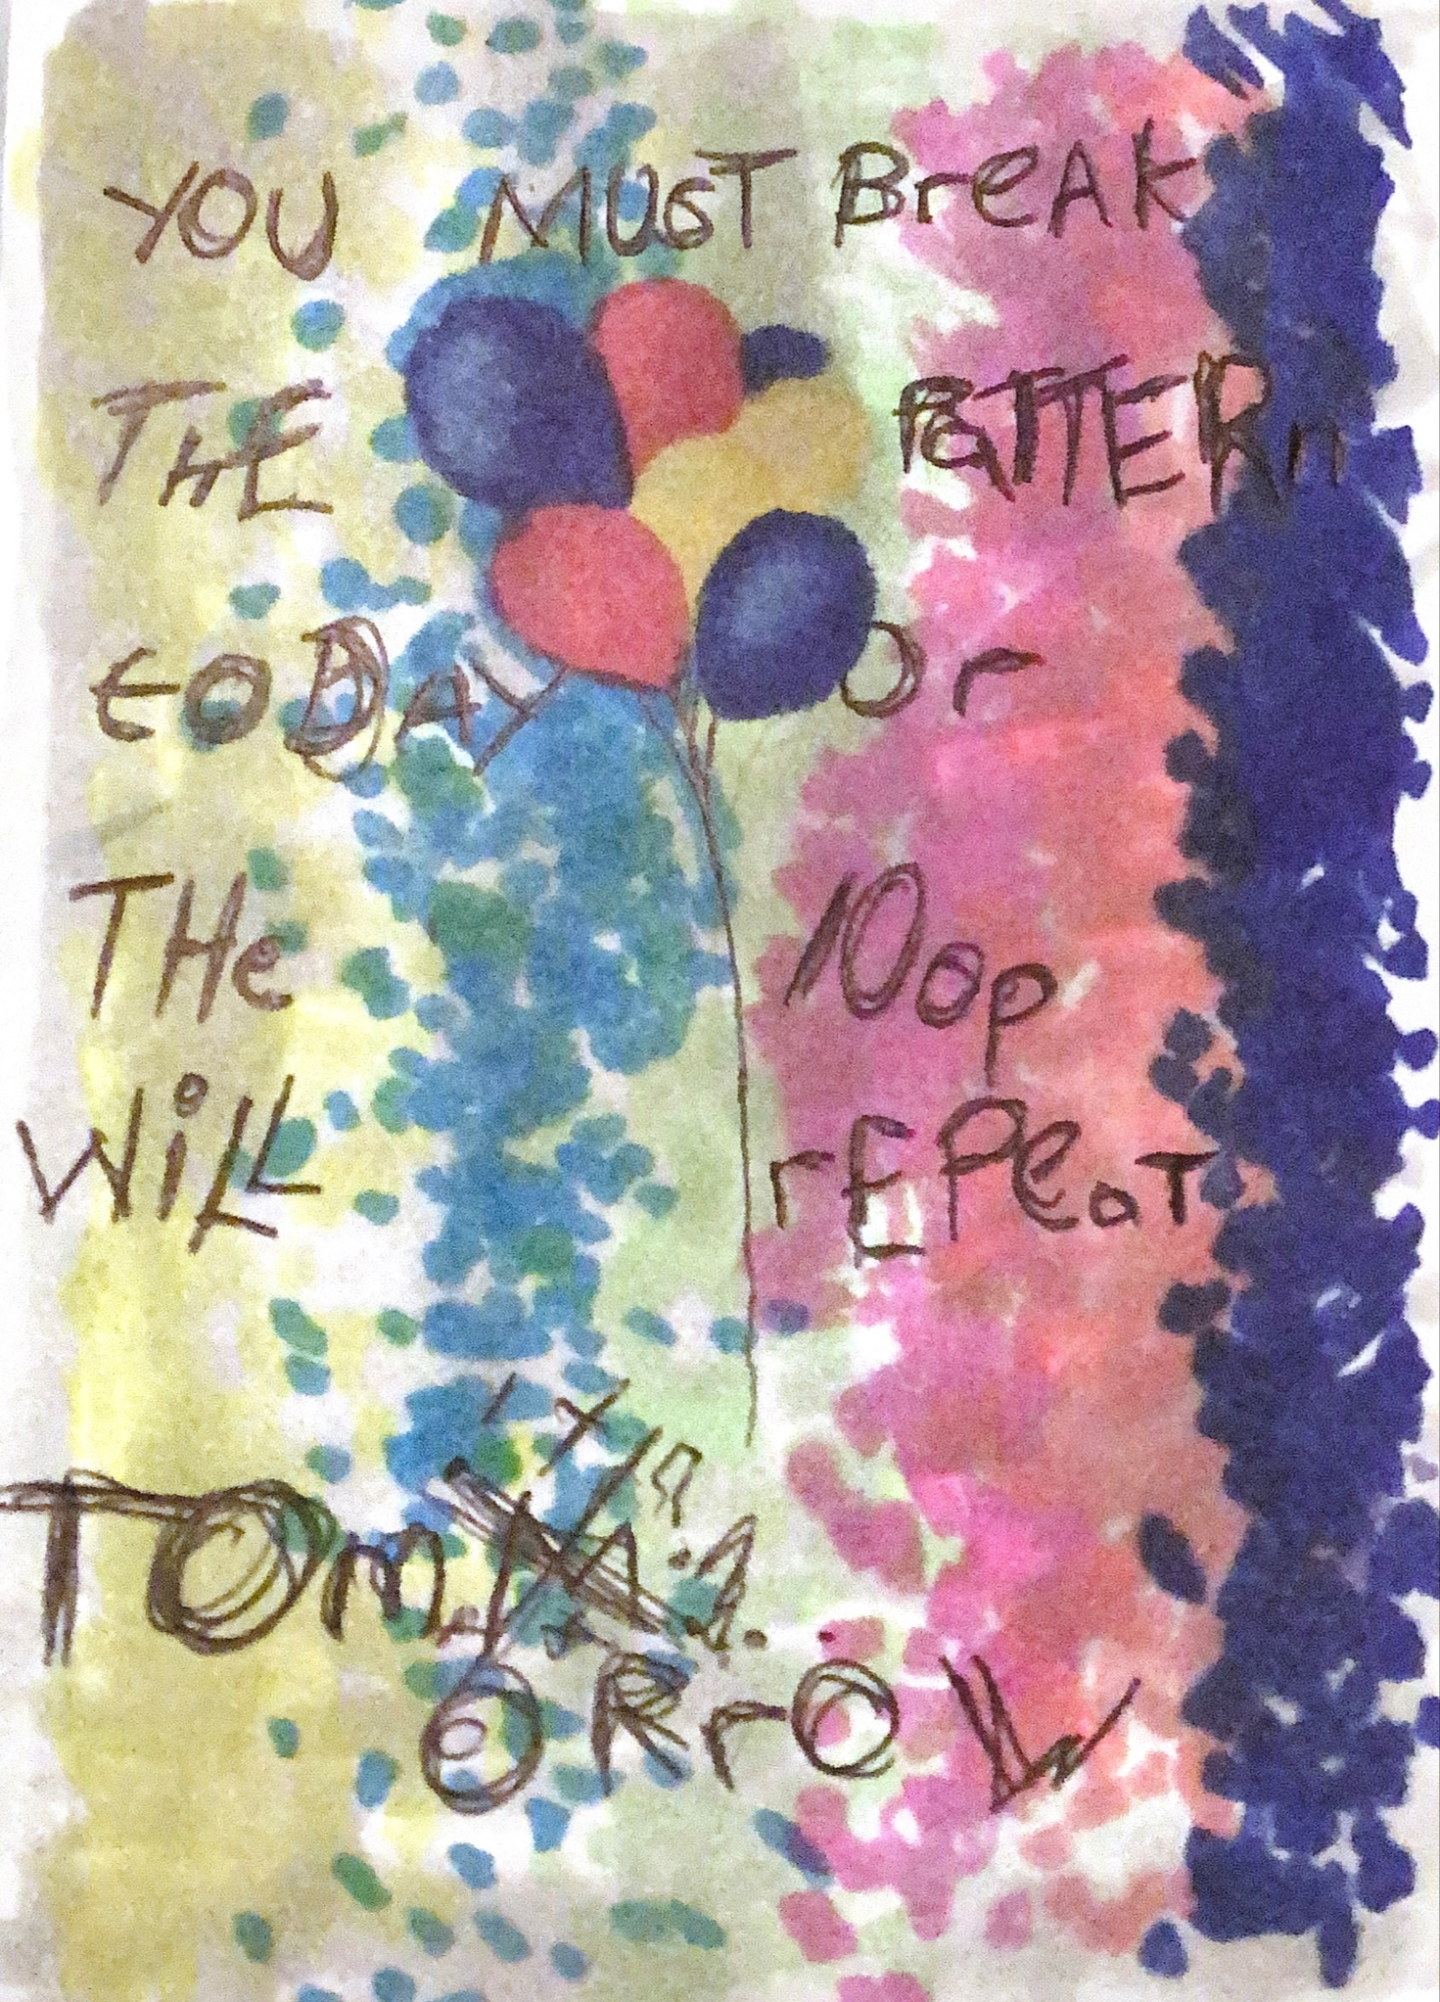 YOU MUST BreAK
ThE PATTERn
toDAY Or
THe lOop
WiLL rEPeaT
TOm
ORrOW